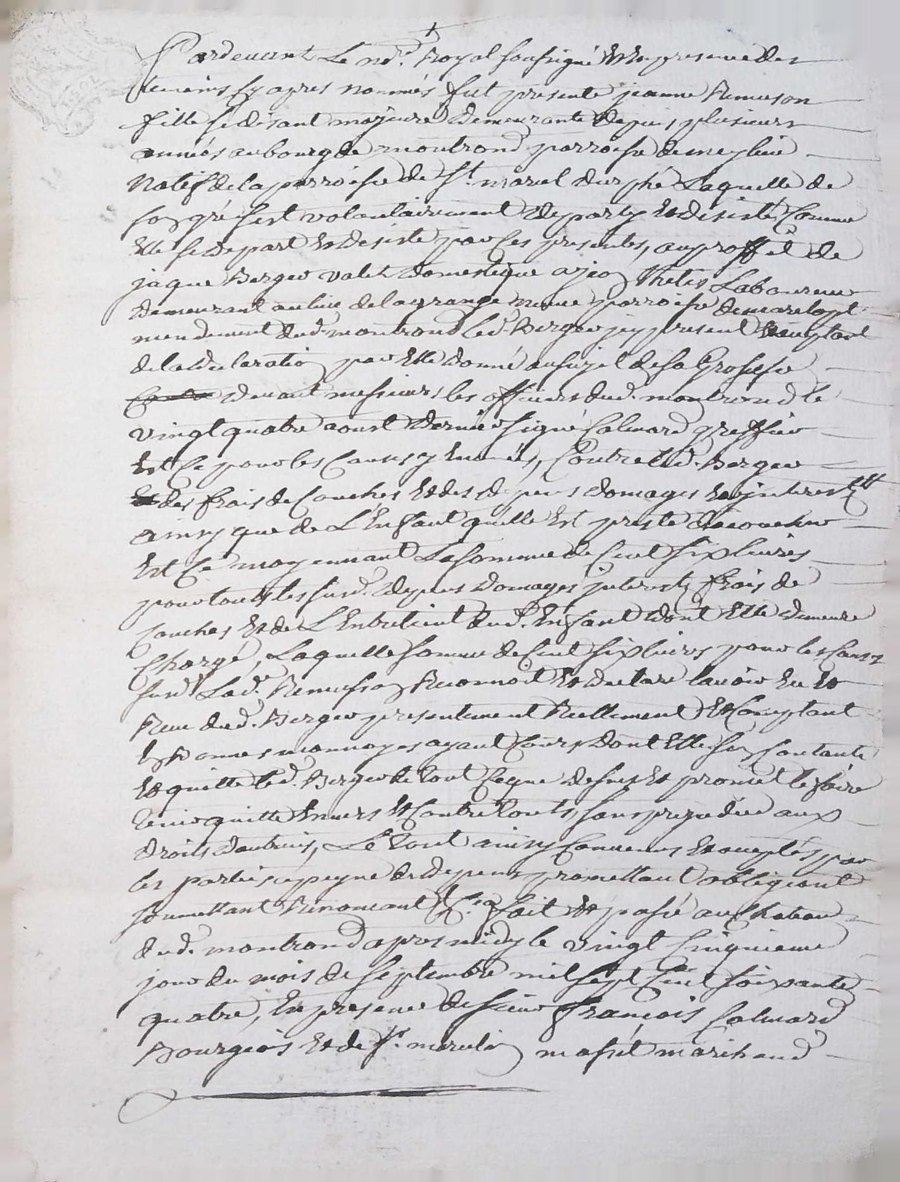 Pardevant Le nore. Royal soussigné Et En presence des
temoins cy apres nommés fut presente jeanne Remuson
fille se disant majeure Demeurante Depuis plusieurs
années au bourg de montrond parroisse de meylieu
Natif de la parroisse de St. marcel durphé Laquelle de
son gré s'est volontairement Departy Et Desisté Comme
Elle se Depart Et Desiste par Ces presentes, au proffit de
jaque Berger valet Domestique a jean Laboureur
Demeurant au lieu de la grange parroisse de
mendement dud. montrond led. Berger icy present Et acceptant
de la Declaration par Elle Donné au sujet de sa Grossesse
Devant messieurs les officiers dud. montrond le
vingt quatre aoust Dernier signé Calmard greffier
Et Ce pour les Causes y Enoncées, Contre led. Berger
des frais de Couches Et des depens Domages Et interests
ainsy que de L'Enfant qu'elle Est preste d'accoucher
Et Ce moyennant La somme de Cent six livres
pour tous les susd. Depens Domages interests frais de
Couches Et de L'Entretient dud. Enfant dont Elle demeure
Chargé, Laquelle somme de Cent six livres pour les Causes
susd. Lad. Remuson Reconnoit Et Declare l'avoir Eu Et
Receu dud. Berger presentement Reellement Et Comptant
En Bonnes monnoyes ayant Cours Dont Elle s'en Contante
Et quitte led. Berger de tout Ce que dessus Et promet le faire
tenir quitte Envers Et Contre touts sans prejudice aux
Droits d'autruis, Le tout ainsy Convenus Et acceptés par
les parties a peyne de Depens promettant obligeant
soumettant Renoncant &ca. fait Et passé au chateau
dud. montrond apres midy le vingt Cinquieme
jour du mois de septembre mil sept Cent soixante
quatre, En presence de sieur François Calmard
Bourgeois Et de sr. massel marchand